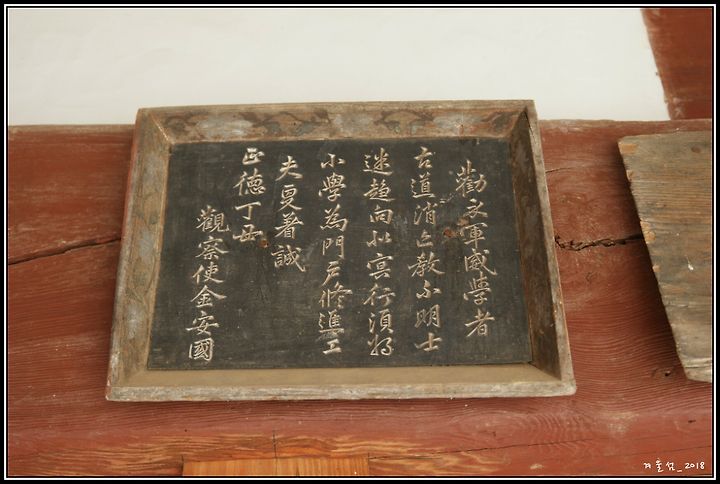 勸軍威學者
古道消亡教不明士
迷趨向似冥行須將
小學為門戶修進工
夫更着誠
正德丁丑
觀察使金安國
겨울섬_2018